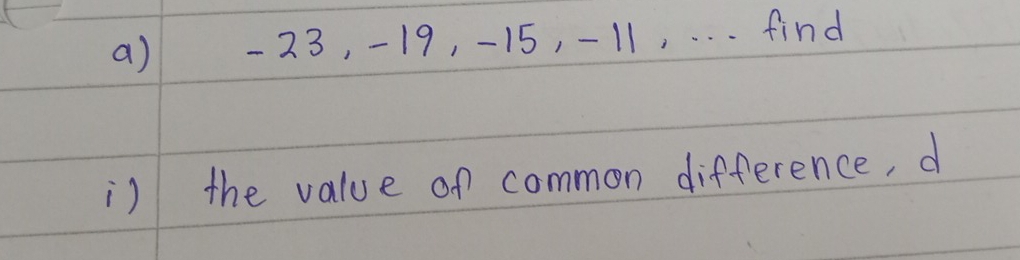 a) -23, -19, -15, -11, ... find
i) the value of common difference, d